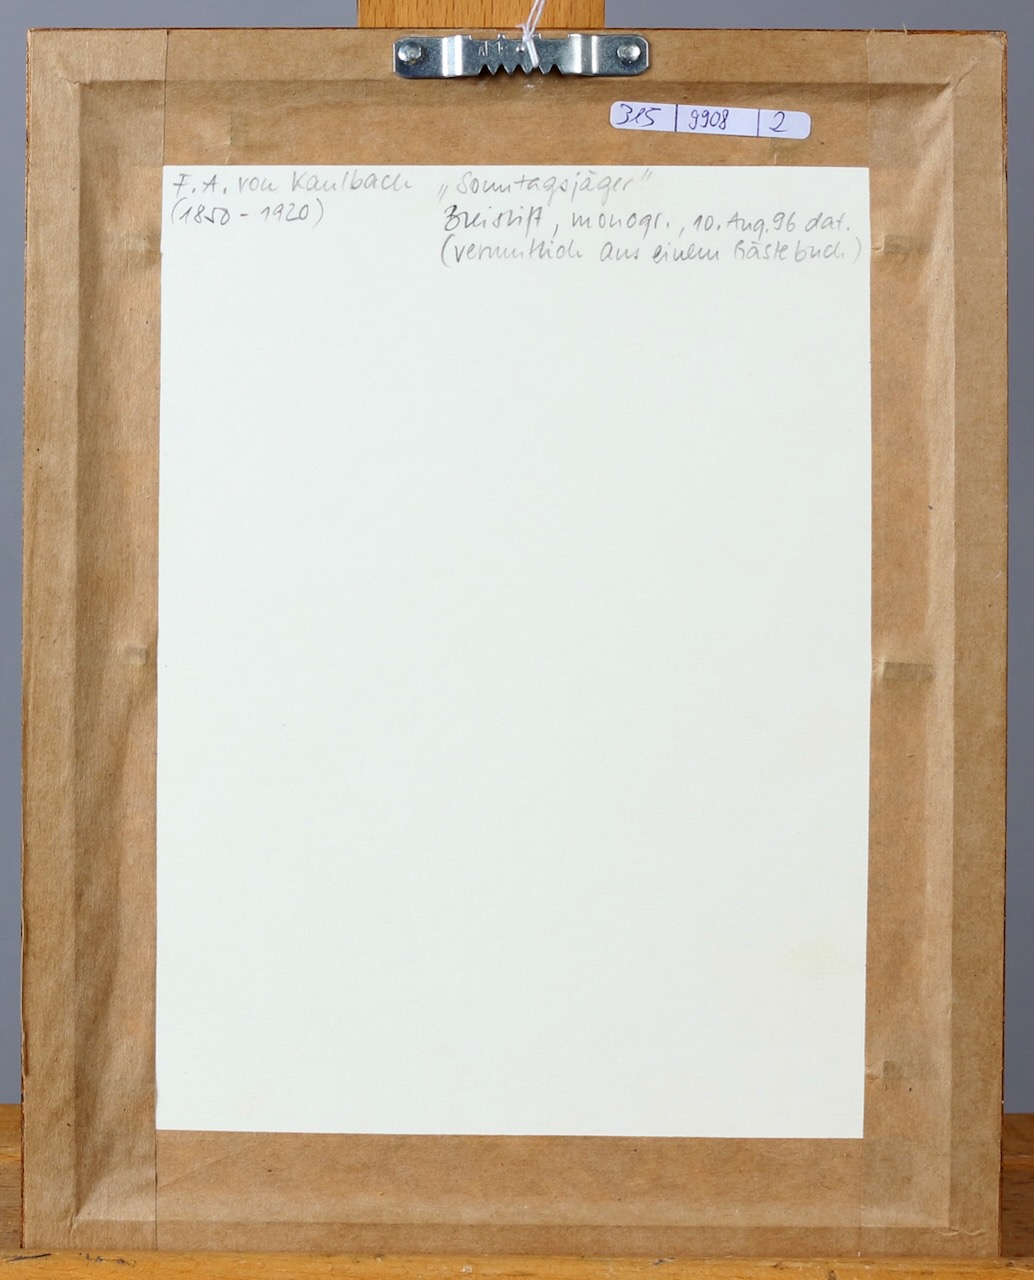 315 9908 2
F. A. von Kaulbach „Sonntagsjäger"
(1850 - 1920) Bleistift, monogr., 10. Aug. 96 dat.
(vermutlich aus einem Gästebuch)